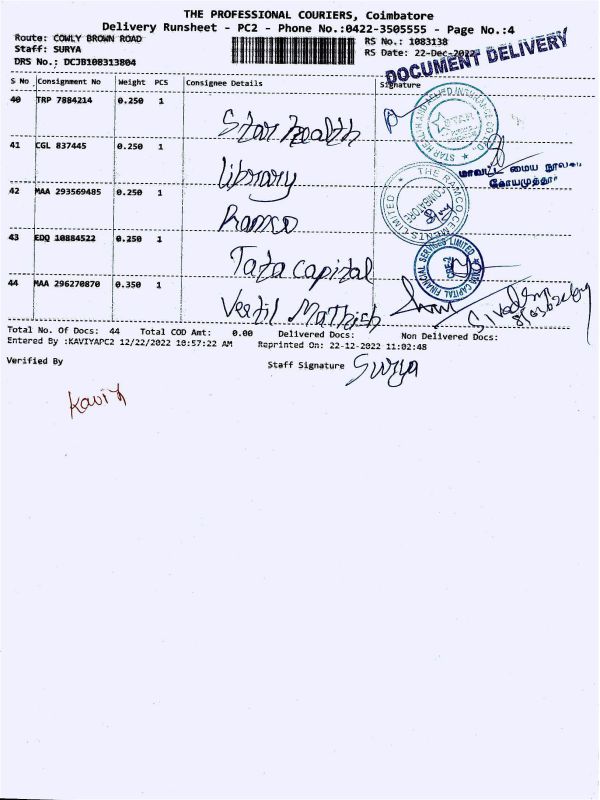 THE PROFESSIONAL COURIERS, Coimbatore
Delivery Runsheet - PC2 - Phone No.:0422-3505555 - Page No.:4
Route: COWLY BROWN ROAD
RS No.: 1083138
Staff: SURYA
RS Date: 22-Dec-2022
DRS No.: DCJB100313804
DOCUMENT DELIVERY
S No Consignment No Weight PCS Consignee Details Signature
40 TRP 7884214 0.250 1 Star health
STAR HEALTH AND ALLIED INSURANCE CO. LTD.
STAR
41 CGL 837445 0.250 1 library
மாவட்ட மைய நூலக
கோயமுத்தூர்
42 MAA 293569485 0.250 1 Ramco
THE RAMCO CEMENTS LIMITED
COIMBATORE
43 EDQ 10884522 0.250 1 Tata capital
TATA CAPITAL FINANCIAL SERVICES LIMITED
CBE-2
44 MAA 296270870 0.350 1
Total No. Of Docs: 44 Total COD Amt: 0.00 Delivered Docs: Non Delivered Docs:
Entered By :KAVIYAPC2 12/22/2022 10:57:22 AM Reprinted On: 22-12-2022 11:02:48
Verified By
Staff Signature Surya